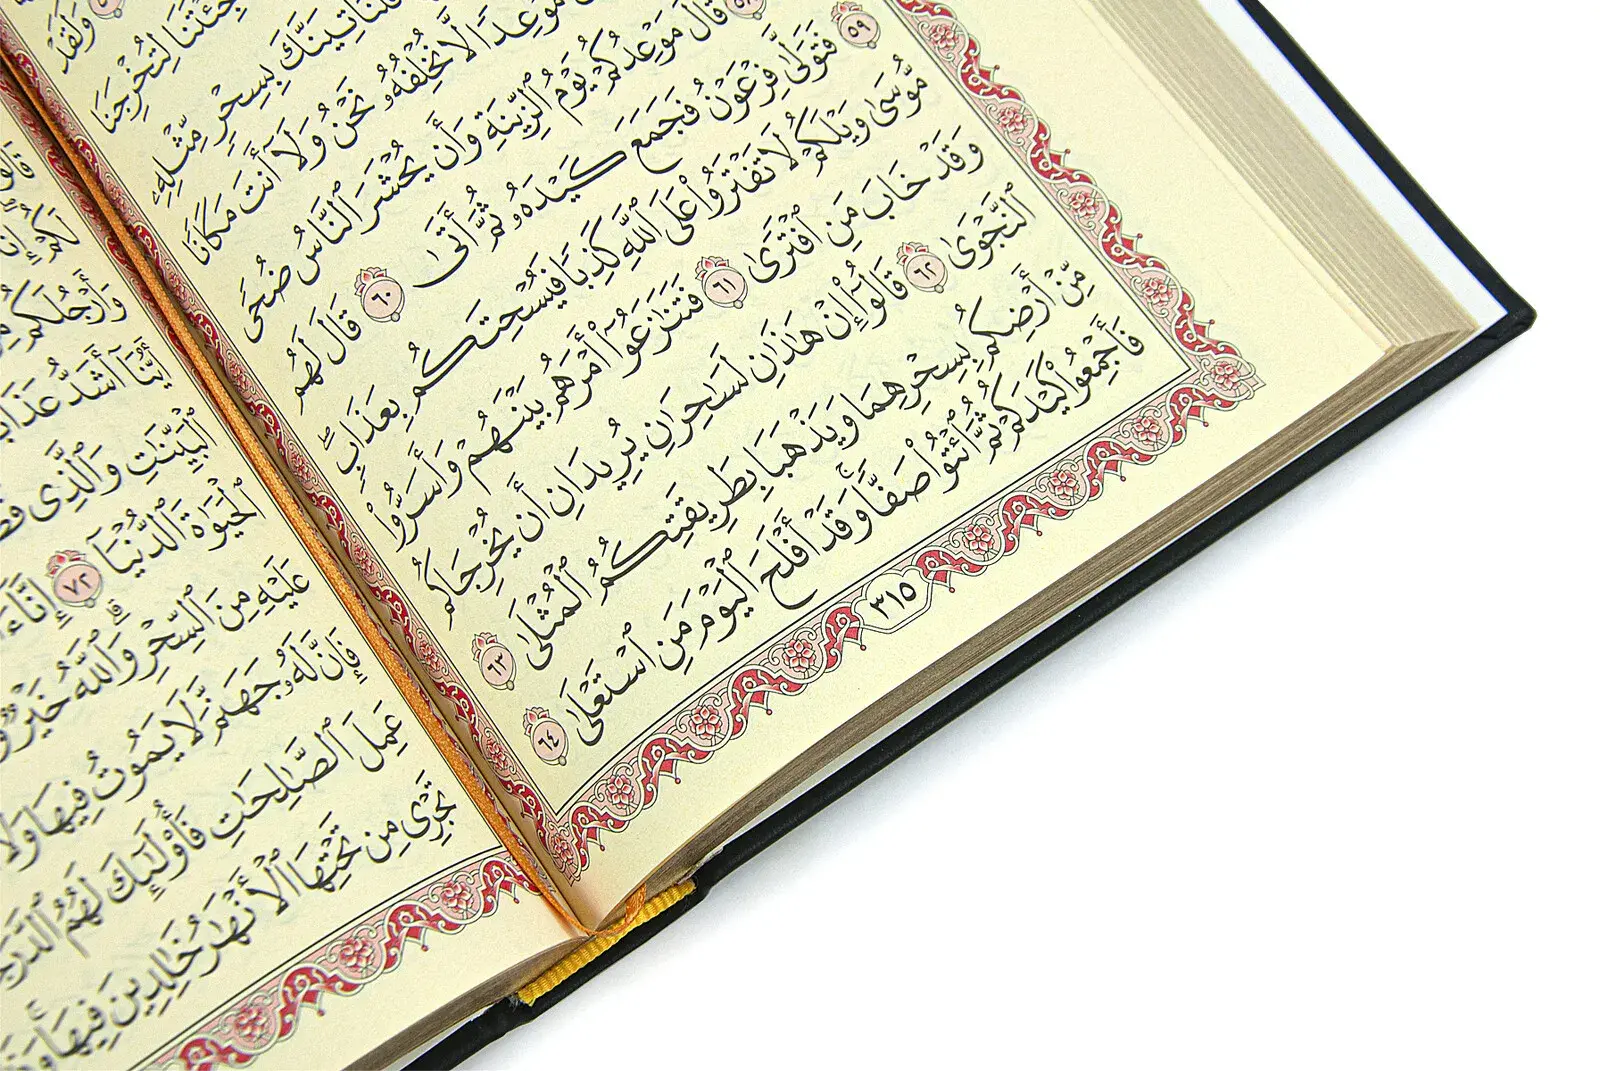 وَلَقَدْ
لِتُخْرِجَنَا
فَلَنَأْتِيَنَّكَ بِسِحْرٍ مِّثْلِهِۦ
مَوْعِدًا لَّا نُخْلِفُهُۥ نَحْنُ وَلَآ أَنتَ مَكَانًا
قَالَ مَوْعِدُكُمْ يَوْمُ ٱلزِّينَةِ وَأَن يُحْشَرَ ٱلنَّاسُ ضُحًى
٥٩ فَتَوَلَّىٰ فِرْعَوْنُ فَجَمَعَ كَيْدَهُۥ ثُمَّ أَتَىٰ ٦٠ قَالَ لَهُم
مُّوسَىٰ وَيْلَكُمْ لَا تَفْتَرُوا۟ عَلَى ٱللَّهِ كَذِبًا فَيُسْحِتَكُم بِعَذَابٍۖ
وَقَدْ خَابَ مَنِ ٱفْتَرَىٰ ٦١ فَتَنَٰزَعُوٓا۟ أَمْرَهُم بَيْنَهُمْ وَأَسَرُّوا۟
ٱلنَّجْوَىٰ ٦٢ قَالُوٓا۟ إِنْ هَٰذَٰنِ لَسَٰحِرَٰنِ يُرِيدَانِ أَن يُخْرِجَاكُم
مِّنْ أَرْضِكُم بِسِحْرِهِمَا وَيَذْهَبَا بِطَرِيقَتِكُمُ ٱلْمُثْلَىٰ ٦٣
فَأَجْمِعُوا۟ كَيْدَكُمْ ثُمَّ ٱئْتُوا۟ صَفًّاۚ وَقَدْ أَفْلَحَ ٱلْيَوْمَ مَنِ ٱسْتَعْلَىٰ ٦٤
٣١٥
لَكُمْ
وَأَرْجُلَكُم
أَيُّنَآ أَشَدُّ
ٱلْبَيِّنَٰتِ وَٱلَّذِى
ٱلْحَيَوٰةَ ٱلدُّنْيَآ ٧٢ إِنَّآ
عَلَيْهِ مِنَ ٱلسِّحْرِۗ وَٱللَّهُ خَيْرٌ
فَإِنَّ لَهُۥ جَهَنَّمَ لَا يَمُوتُ فِيهَا وَلَا
عَمِلَ ٱلصَّٰلِحَٰتِ فَأُو۟لَٰٓئِكَ لَهُمُ
تَجْرِى مِن تَحْتِهَا ٱلْأَنْهَٰرُ خَٰلِدِينَ فِيهَا